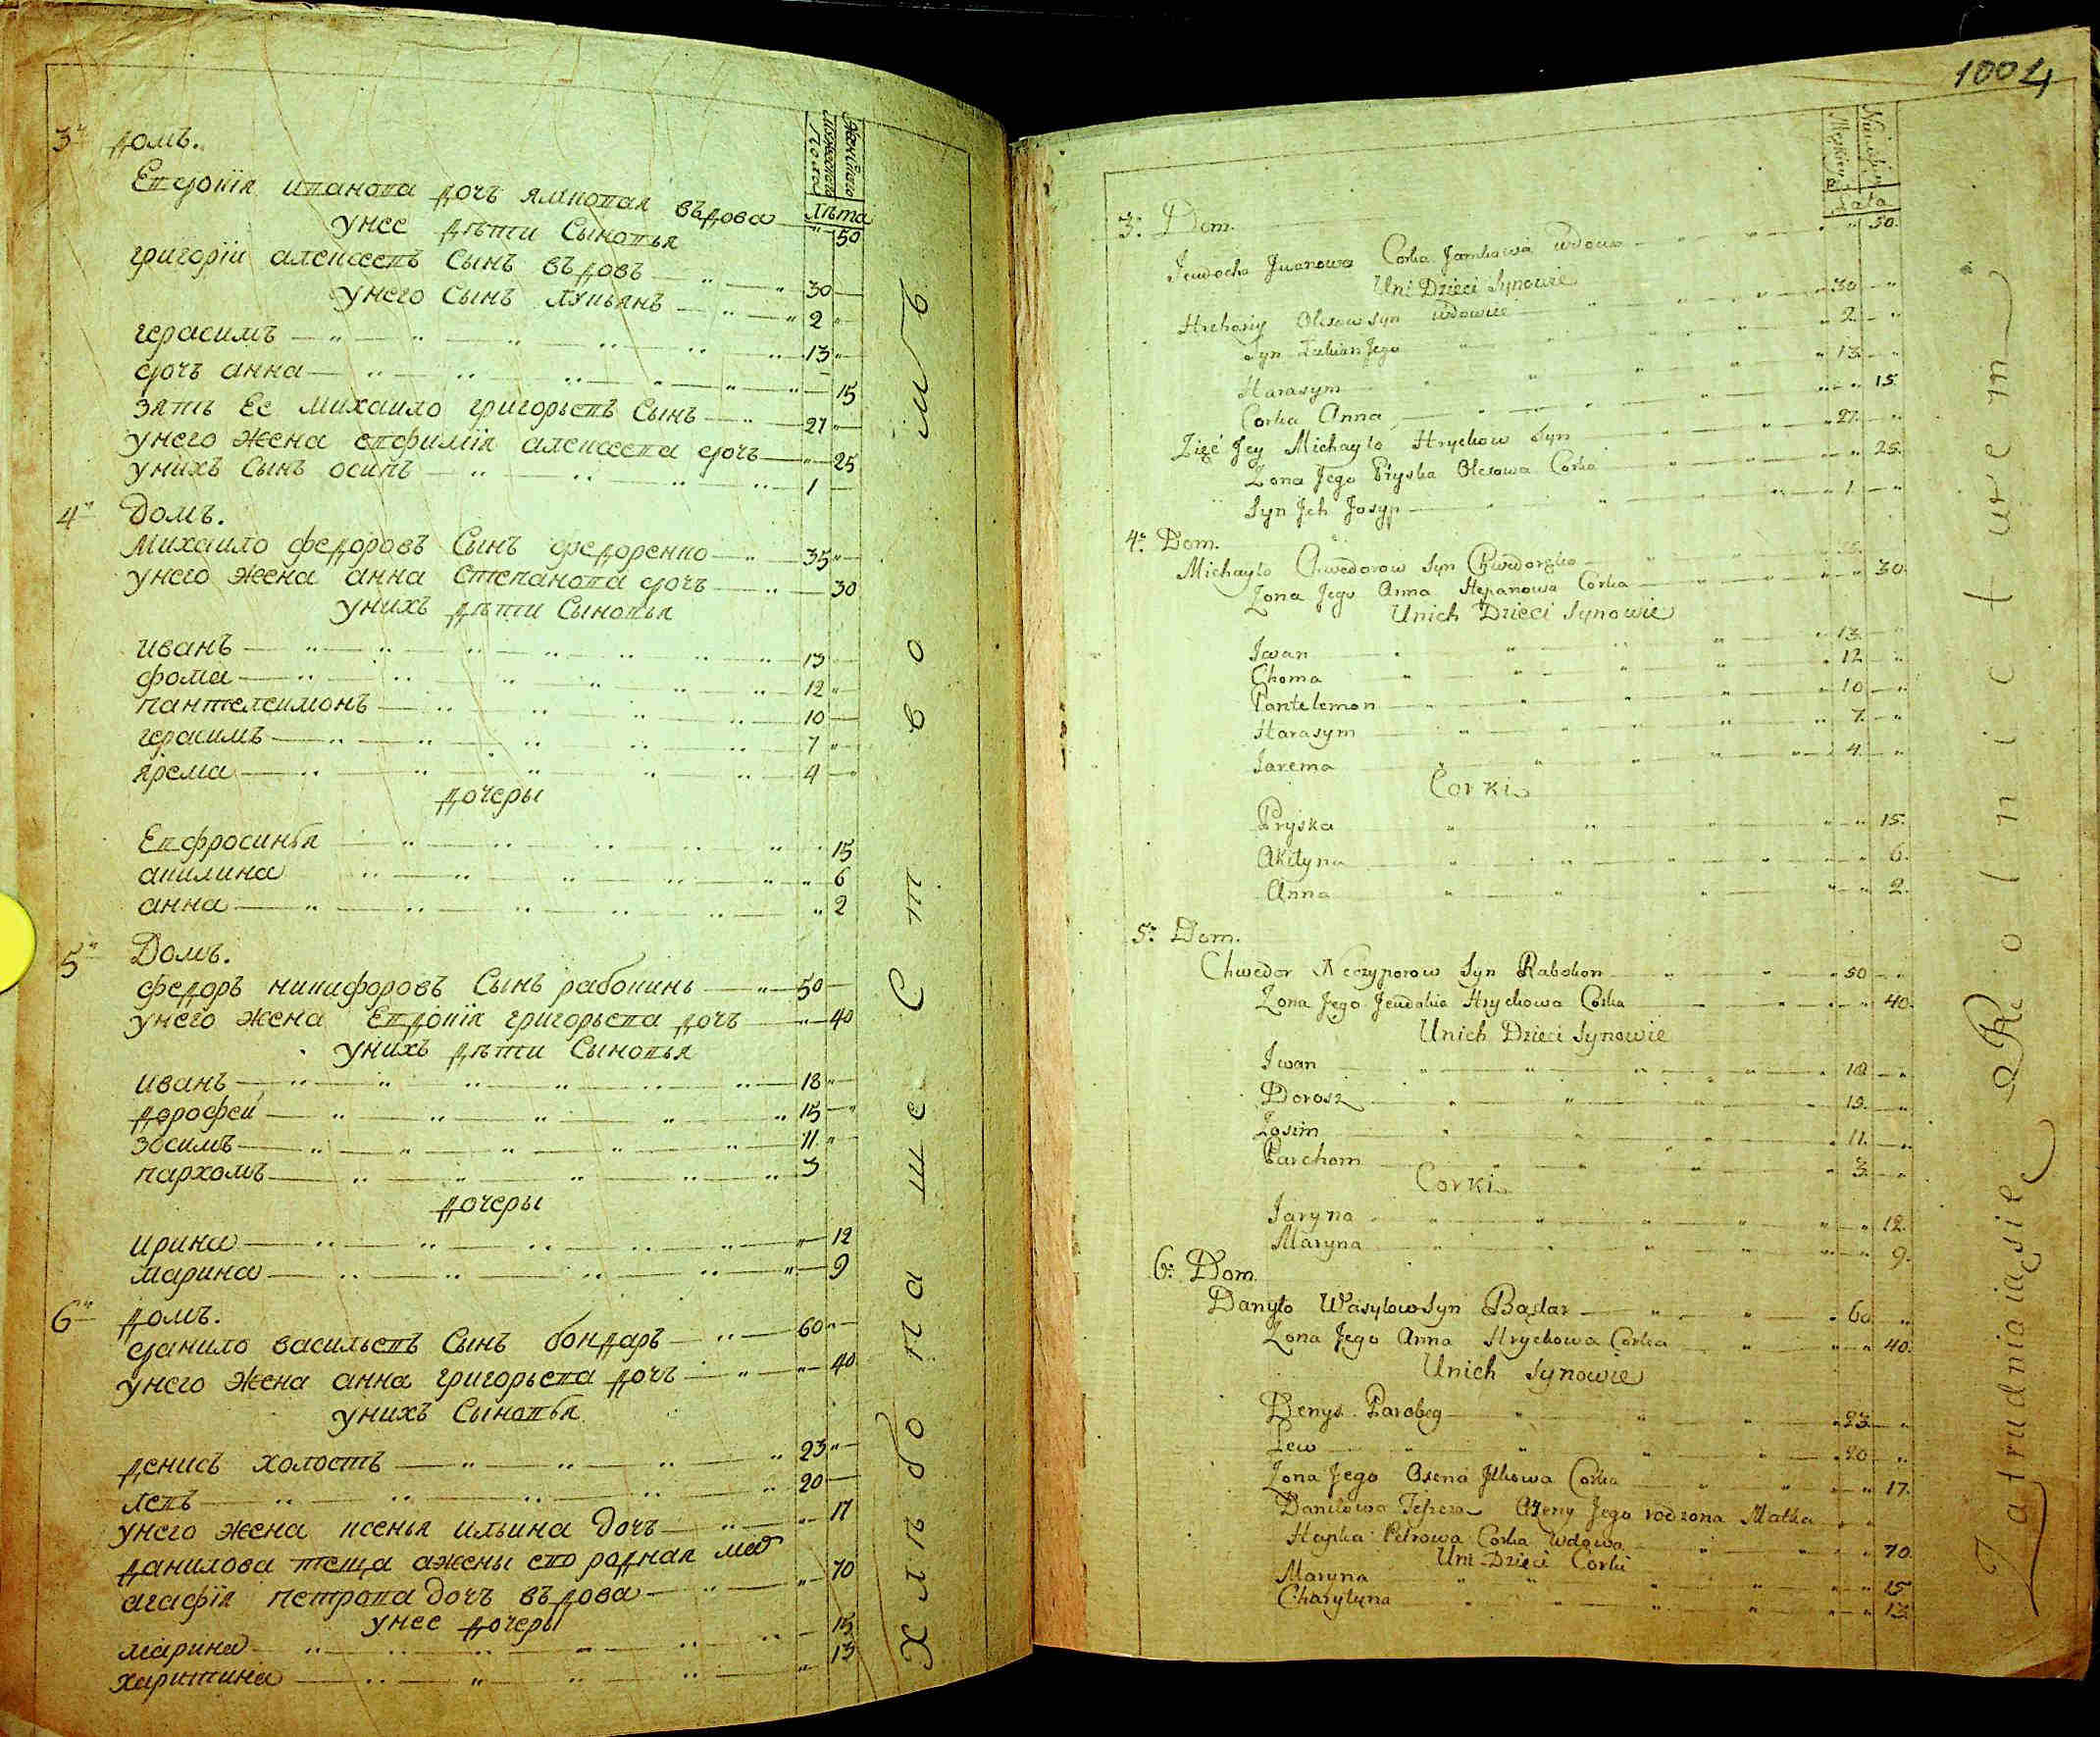 Мужескаго Женскаго
Пола
Лѣта
3й домъ.
Евдокія иванова дочъ ямковая въдова — " 50
унее дѣти Сыновья
григоріи алексеевъ Сынъ въдовъ — 30
унего Сынъ лукьянъ — 2
герасимъ — 13
дочъ анна — 15
зять Ее михаило григорьевъ Сынъ — 27
унего жена евфимія алексеева дочъ — 25
унихъ Сынъ осипъ — 1
4й домъ.
Михаило федоровъ Сынъ федоренко — 35
унего жена анна степанова дочъ — 30
унихъ дѣти Сыновья
иванъ — 13
фома — 12
пантелеимонъ — 10
герасимъ — 7
ярема — 4
дочеры
Евфросинья — 15
акилина — 6
анна — 2
5й Домъ.
федоръ никифоровъ Сынъ рабокинь — 50
унего жена Евдокія григорьева дочъ — 40
унихъ дѣти Сыновья
иванъ — 18
дорофеи — 15
зосимъ — 11
пархомъ — 3
дочеры
ирина — 12
марина — 9
6й домъ.
данило васильевъ Сынъ бондаръ — 60
унего жена анна григорьева дочъ — 40
унихъ Сыновья
денисъ холостъ — 23
левъ — 20
унего жена ксенья ильина дочъ — 17
данилова теща ажены его родная мат
агафія петрова дочъ въдова — 70
унее дочеры
марина — 15
харитина — 13
хлѣбопашество
1004
Lata
3: Dom.
Jewdocha Jwanowa Corka Jamkowa wdowa — 50.
Uni Dzieci Synowie
Hrehory Olexow Syn wdowiec — 30
Syn Łukian Jego — 2.
Harasym — 13.
Corka Anna — 15.
Zięć Jey Michayło Hryckow Syn — 27.
Zona Jego Pryska Olexowa Corka — 25.
Syn Jch Josyp — 1.
4: Dom.
Michayło Chwedorow Syn Chwedorenko — 35.
Zona Jego Anna Stepanowa Corka — 30.
Unich Dzieci Synowie
Jwan — 13.
Choma — 12
Pantelemon — 10
Harasym — 7.
Jarema — 4.
Corki
Pryska — 15.
Akilyna — 6.
Anna — 2.
5: Dom.
Chwedor Neczyporow Syn Rabokon — 50
Zona Jego Jewdokia Hryckowa Corka — 40.
Unich Dzieci Synowie
Jwan — 18
Dorosz — 15.
Zosim — 11.
Parchom — 3.
Corki
Jaryna — 12.
Maryna — 9.
6: Dom.
Danyło Wasylow Syn Bądar — 60
Zona Jego Anna Hryckowa Corka — 40.
Unich Synowie
Denys Parobeg — 23.
Lew — 20
Zona Jego Oxena Jlkowa Corka — 17.
Daniłowa Teszcza Ażeny Jego rodzona Matka
Hapka Petrowa Corka Wdowa — 70.
Uni Dzieci Corki
Maryna — 15
Charytyna — 13
Zatrudniaią się Rolnictwem